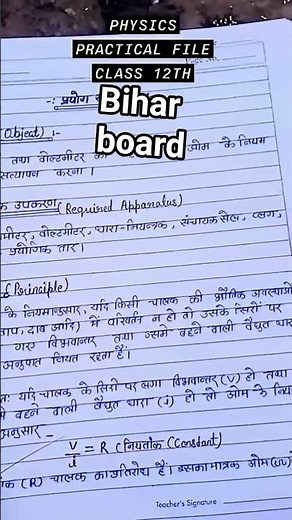 PHYSICS
PRACTICAL FILE
CLASS 12TH
Bihar
board
-: प्रयोग
(Object) :-
तथा वोल्टमीटर ओम के नियम
सत्यापन करना।
उपकरण (Required Apparatus)
वोल्टमीटर, धारा-नियन्त्रक, संचायक सेल, प्लग,
तार।
(Principle)
के नियमानुसार, यदि किसी चालक की भौतिक अवस्थाओं
ताप, दाब आदि) में परिवर्तन न हो तो उसके सिरों पर
गए विभवान्तर तथा उसमे बहने वाली वैद्युत धारा
अनुपात नियत रहता है।
यदि चालक के सिरों पर लगा विभवान्तर (V) हो तथा
बहने वाली वैद्युत धारा (i) हो तो ओम के
अनुसार -
V/i = R (नियतांक (Constant)
(R) चालक का प्रतिरोध है। इसका मात्रक ओम
Teacher's Signature